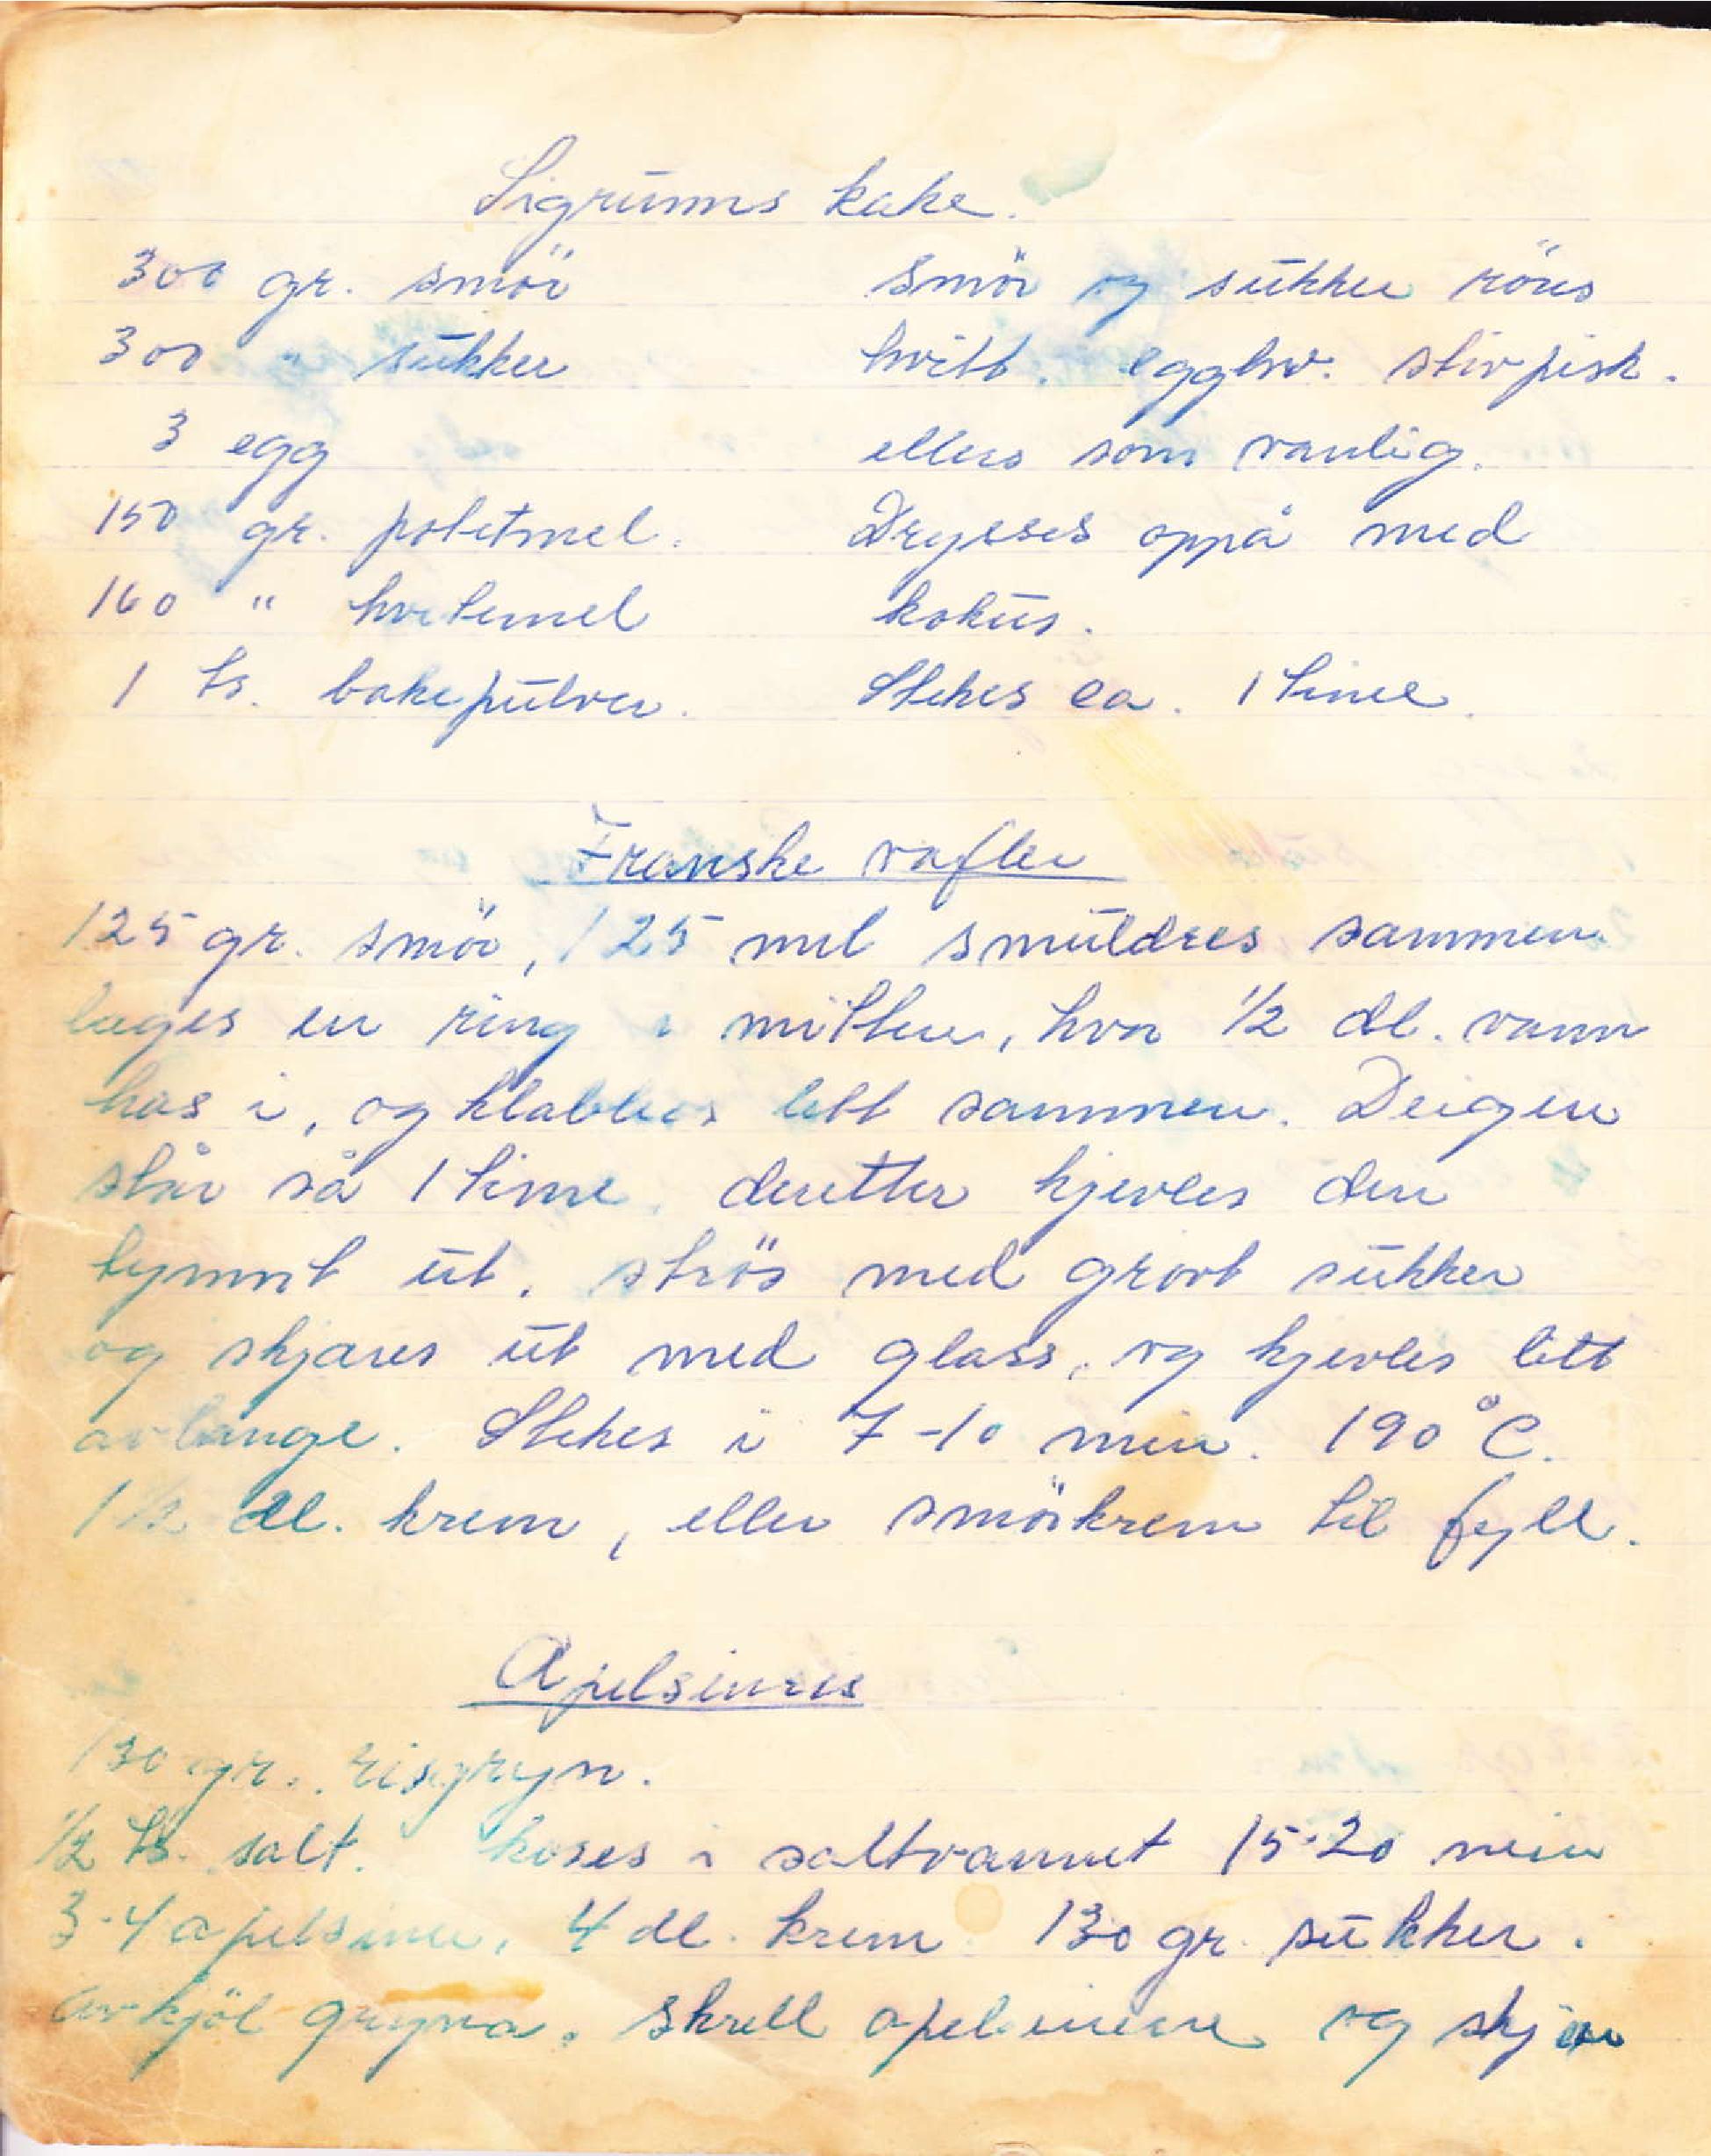 Sigrunns kake.
300 gr. smör
300 " sukker
3 egg
150 gr. potetmel.
160 " hvetemel
1 ts. bakepulver.
Smör og sukker röres
hvitt. eggehv. stivpisk.
ellers som vanlig.
Drysses oppå med
kokus.
Stekes ca. 1 time.
Franske vafler
125 gr. smör, 125 mel smuldres sammen
lages en ring i mitten, hvor 1/2 dl. vann
has i, og klabbes lett sammen. Deigen
står så 1 time, deretter kjevles den
tynnt ut, strös med grovt sukker
og skjæres ut med glass, og kjevles litt
avlange. Stekes i 7-10 min. 190°C.
1 1/2 dl. krem, eller smörkrem til fyll.
Apelsinris
130 gr. risgryn.
1/2 ts. salt. koses i saltvannet 15-20 min
3-4 apelsiner, 4 dl. krem 130 gr. sukker.
avkjöl gryna. Skrell apelsinene og skjær